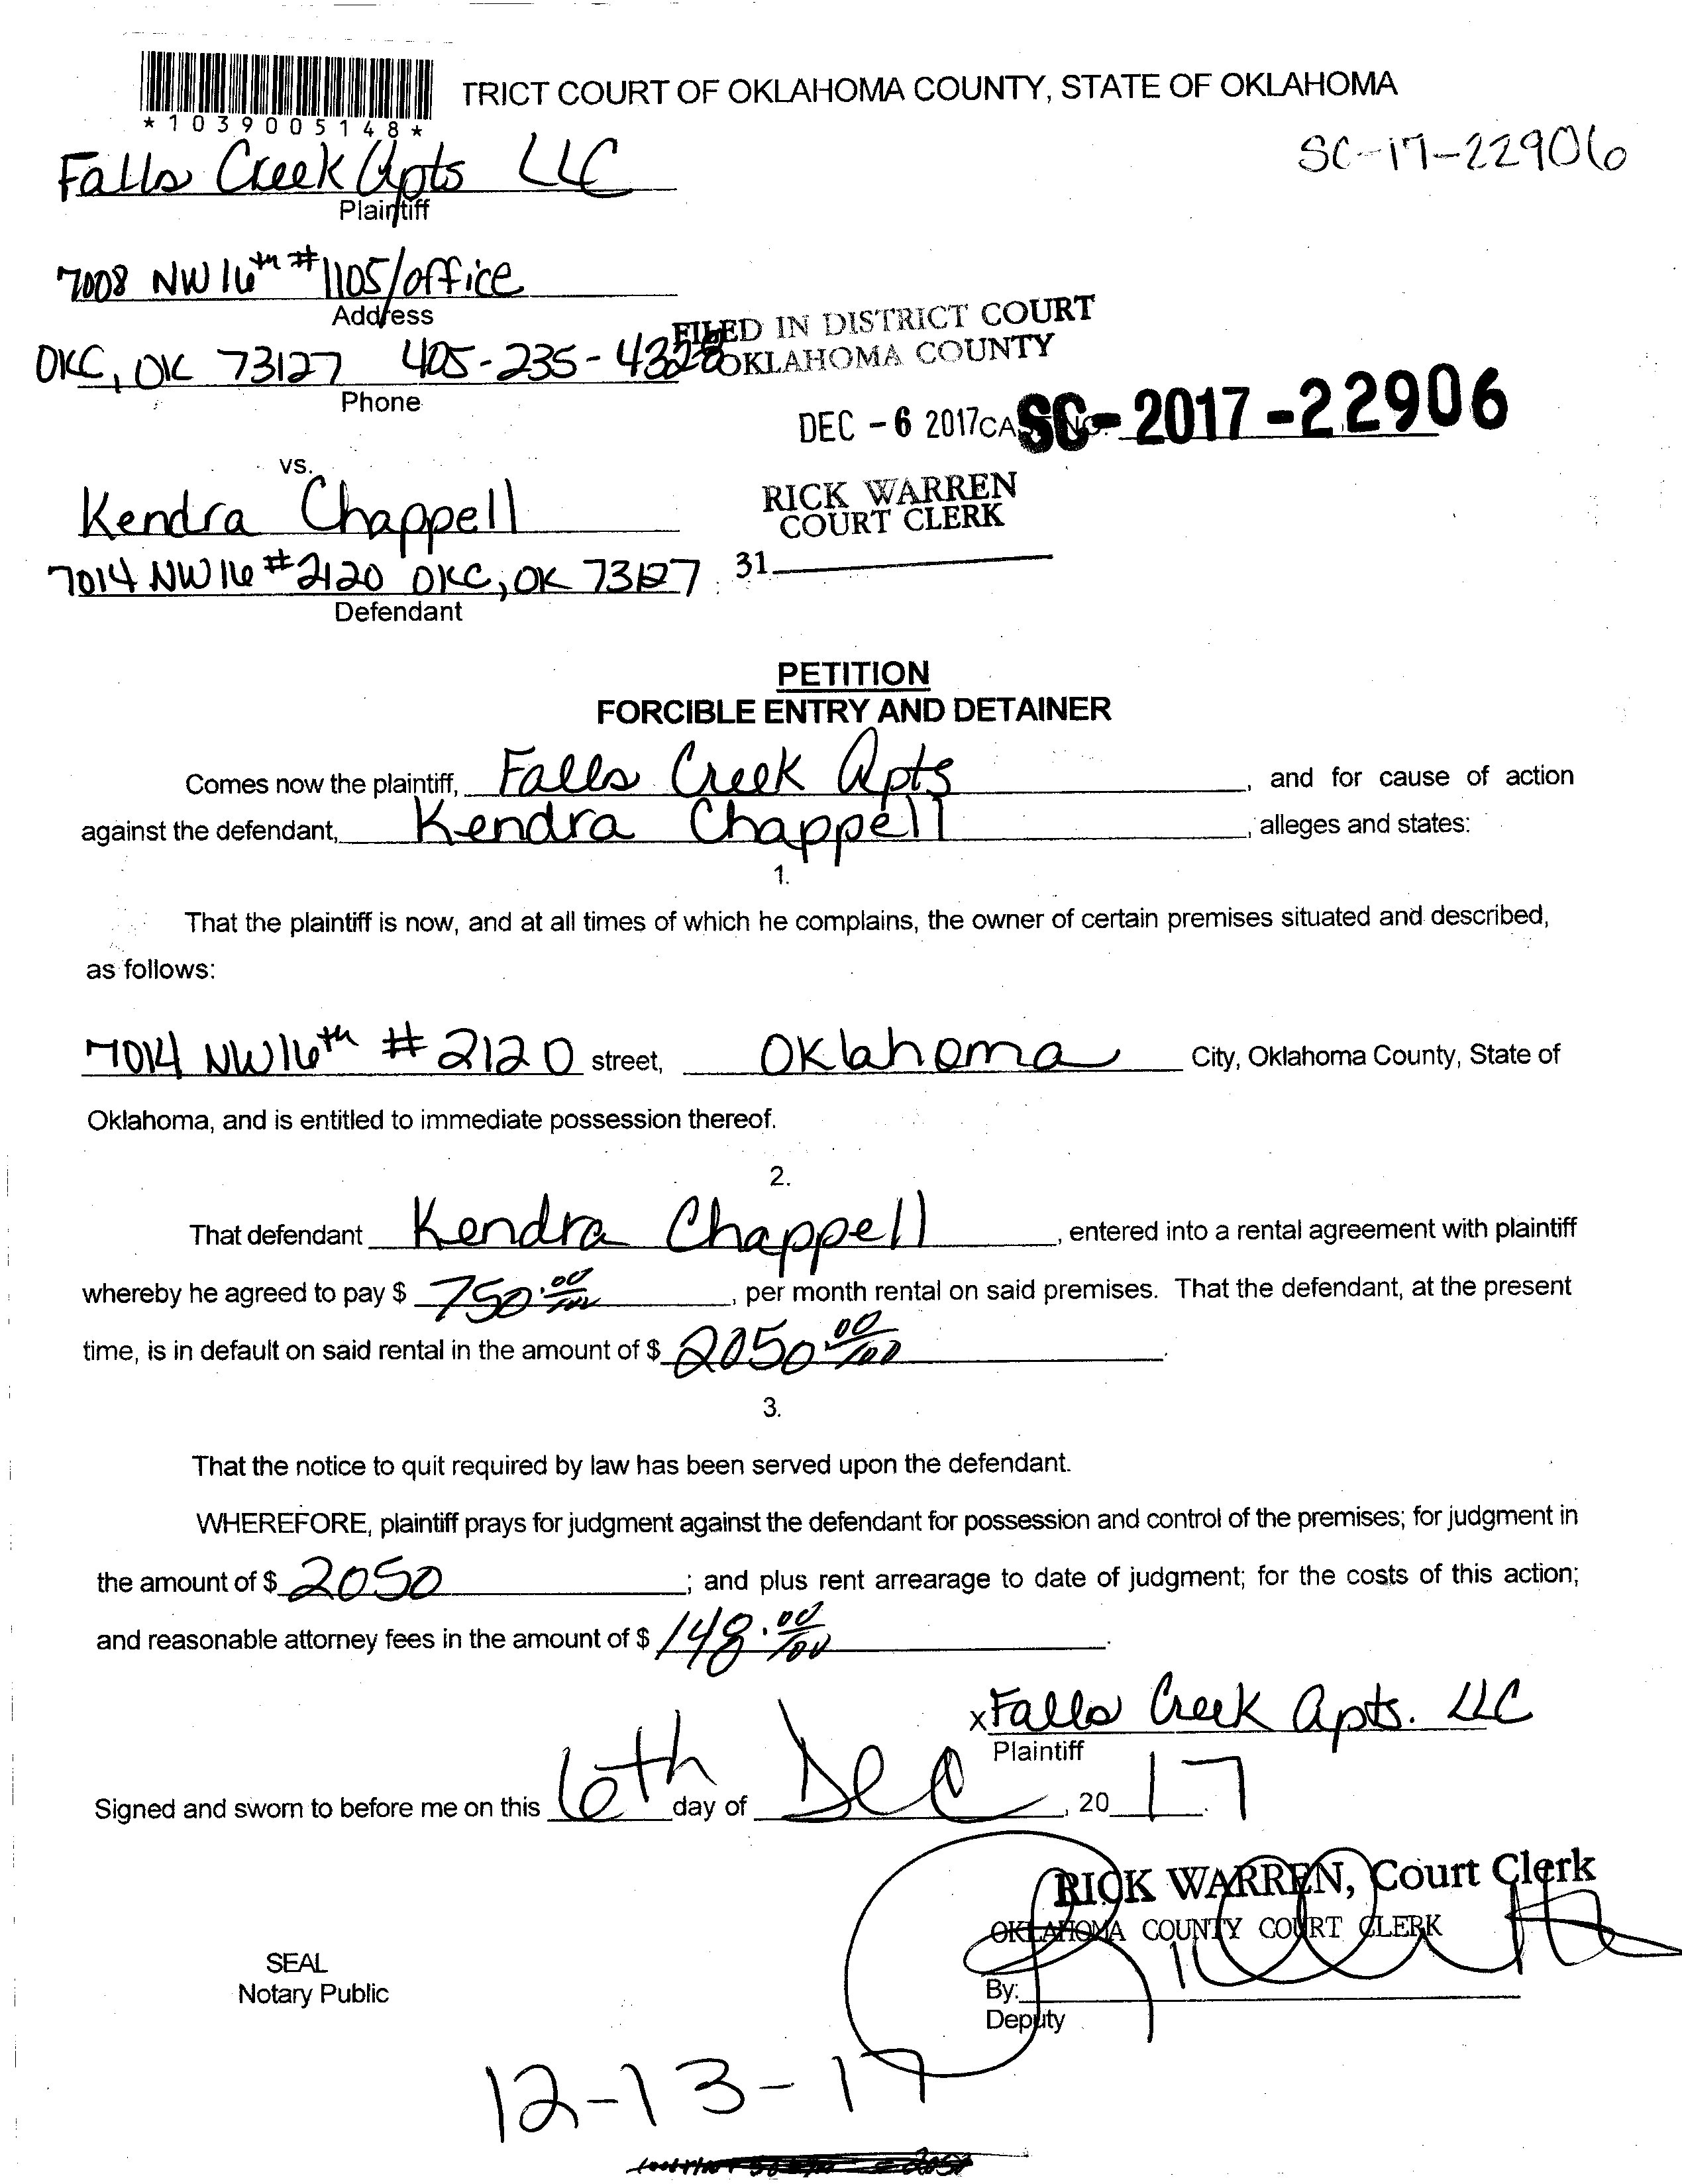 TRICT COURT OF OKLAHOMA COUNTY, STATE OF OKLAHOMA
*1039005148*
SC-17-22906
Falls Creek Apts LLC
Plaintiff
7008 NW 16th #1105/office
Address
OKC, OK 73127 405-235-4328
Phone
FILED IN DISTRICT COURT
OKLAHOMA COUNTY
DEC - 6 2017
SC-2017-22906
vs.
RICK WARREN
COURT CLERK
Kendra Chappell
7014 NW 16 #2120 OKC, OK 73127
31
Defendant
PETITION
FORCIBLE ENTRY AND DETAINER
Comes now the plaintiff, Falls Creek Apts, and for cause of action
against the defendant, Kendra Chappell, alleges and states:
1.
That the plaintiff is now, and at all times of which he complains, the owner of certain premises situated and described,
as follows:
7014 NW 16th #2120 street, Oklahoma City, Oklahoma County, State of
Oklahoma, and is entitled to immediate possession thereof.
2.
That defendant Kendra Chappell, entered into a rental agreement with plaintiff
whereby he agreed to pay $ 750.00/100, per month rental on said premises. That the defendant, at the present
time, is in default on said rental in the amount of $ 2050.00/100.
3.
That the notice to quit required by law has been served upon the defendant.
WHEREFORE, plaintiff prays for judgment against the defendant for possession and control of the premises; for judgment in
the amount of $ 2050; and plus rent arrearage to date of judgment; for the costs of this action;
and reasonable attorney fees in the amount of $ 148.00/100.
x Falls Creek Apts. LLC
Plaintiff
Signed and sworn to before me on this 6th day of Dec, 2017
RICK WARREN, Court Clerk
OKLAHOMA COUNTY COURT CLERK
SEAL
Notary Public
By:
Deputy
12-13-17